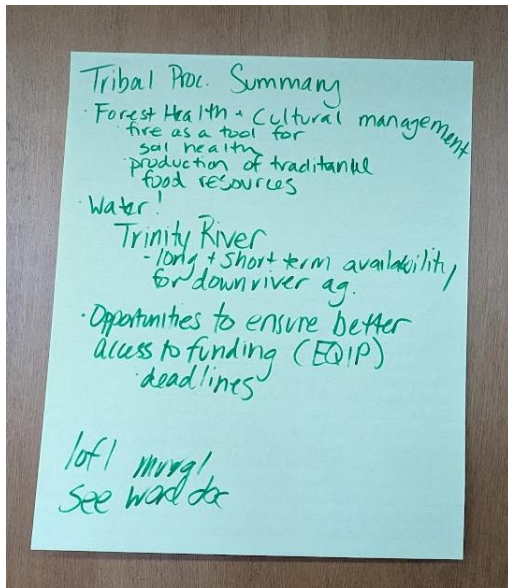 Tribal Proc. Summary
· Forest Health + Cultural management
· fire as a tool for
soil health
· production of traditional
food resources
· Water!
Trinity River
- long + short term availability
for downriver ag.
· Opportunities to ensure better
access to funding (EQIP)
· deadlines
1of1
See word doc